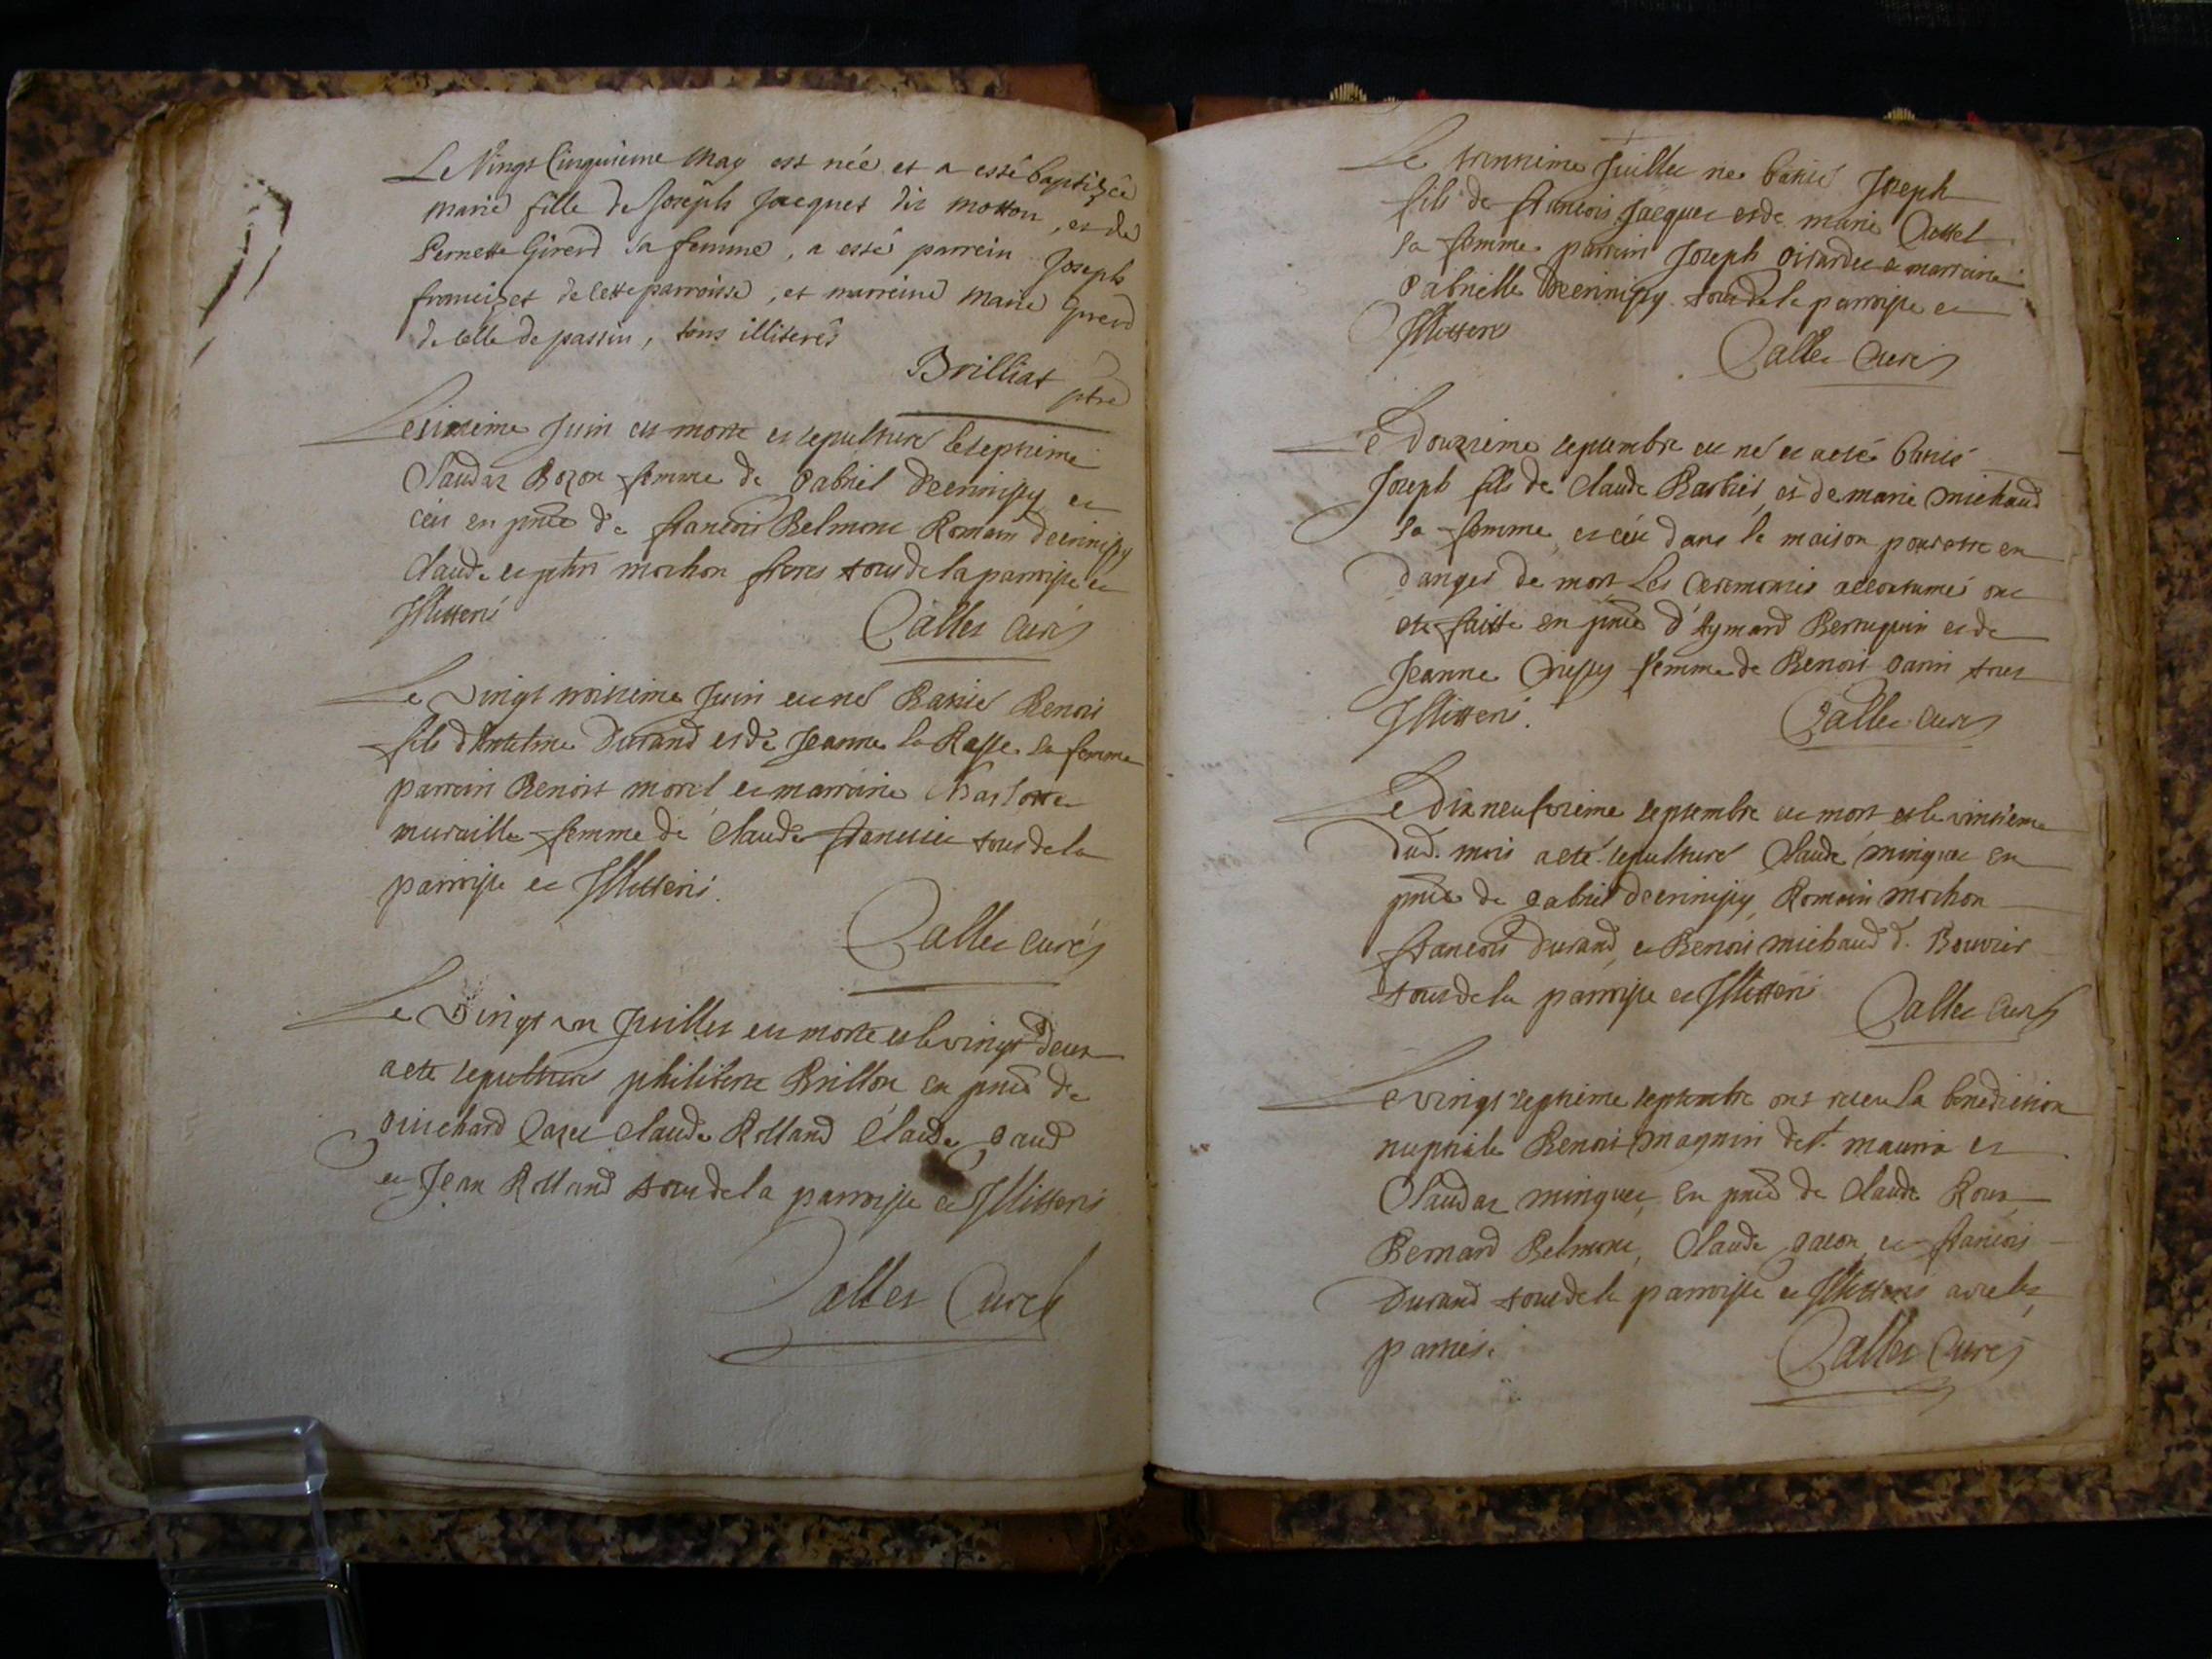 Le Vingt Cinquieme May est née et a esté baptizée
marie fille de Joseph Jacquet dit motton, et de
Pernette Girerd sa femme, a esté parrein Joseph
françizet de cette parroisse, et marreine marie Girerd
de celle de passin, tous illiterés
Brilliat ptre
Le sixieme Juin est morte et sepulturé le septieme
Claudaz Bozon femme de Gabriel
et ceu en pnce de francois Belmont Romain
Claude et mochon freres tous de la parroisse et
Illitteré
Gallet Curé
Le vingt troisieme Juin est né Batisé Benoit
fils d'Antelme Durand et de Jeanne la Rasse sa femme
parrein Benoit morel et marreine Charlotte
muraille femme de Claude tous de la
parroisse et Illitteré.
Gallet curé
Le Vingt un Juillet est morte et le vingt deux
a eté sepulturé philiberte Brillon en pnce de
Guichard Claude Rolland Claude Gaud
et Jean Rolland tous de la parroisse et Illitteré
Gallet Curé
Le Juillet né batisé Joseph
fils de francois Jacquet et de marie
sa femme parrein Joseph Girardet et marreine
Gabrielle tous de la parroisse et
Illitteré
Gallet Curé
Le Douzieme septembre est né et a eté batisé
Joseph fils de Claude Barbier et de marie michaud
sa femme, et ceu dans la maison pour etre en
danger de mort Les Ceremonies accoutumés ont
ete faitte en pnce d'Aymard Berruquin et de
Jeanne femme de Benoit Garin tous
Illitteré.
Gallet curé
Le Dix neufvieme septembre est mort et le vintieme
dud. mois a eté sepulturé Claude minguet en
pnce de Gabriel Romain mochon
francois Durand, et Benoit michaud d. Bouvier
tous de la parroisse et Illitteré
Gallet Curé
Le vingt septieme septembre ont receu la benediction
nuptiale Benoit Magnin de St. maurix et
Claudaz minguet, en pnce de Claude Roux
Bernard Belmont, Claude gacon et francois
Durand tous de la parroisse et Illitteré avec les
parties.
Gallet Curé